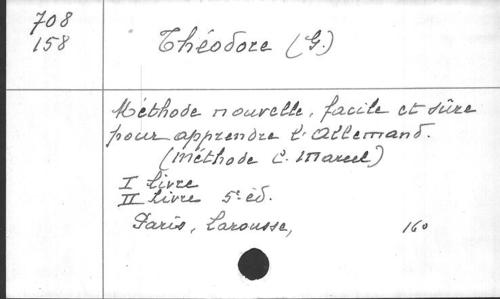 708
158
Théodore (G.)
Méthode nouvelle, facile et sûre
pour apprendre l'Allemand.
(Méthode C. Marcel)
I livre
II livre 5e éd.
Paris, Larousse, 16o